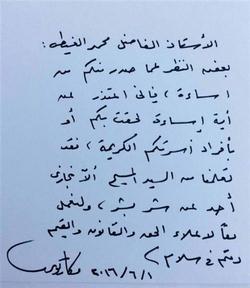 الأستاذ الفاضل محمد الغيطي :
بغض النظر لما صدر منكم من
اساءة ، فإنى اعتذر عن
أية إساءة لحقت بكم أو
بأفراد أسرتكم الكريمة ، فقد
تعلمنا من السيد المسيح ألا نجازى
أحد عن شر بشر ، ولنعمل
معاً لاعلاء الحق والقانون والقيم
دمتم فى سلام
٢٠١٦/٦/١